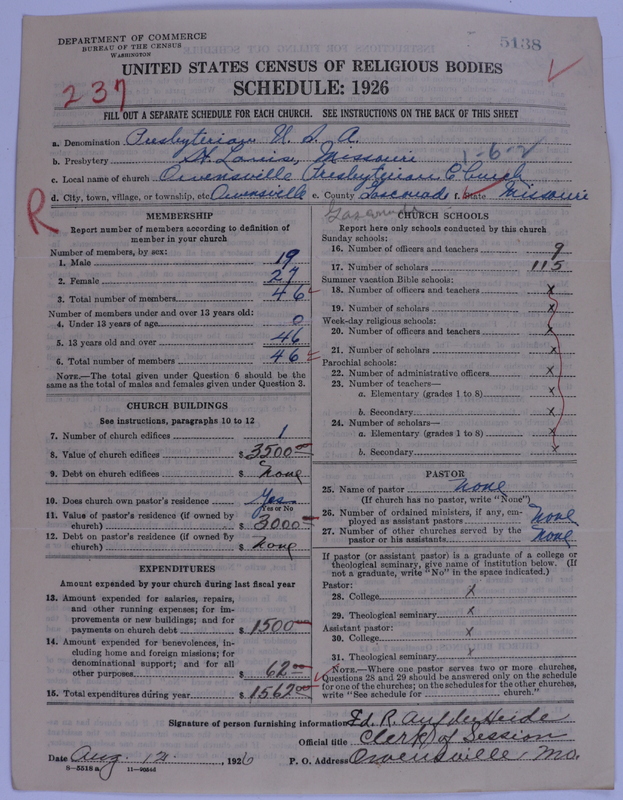 DEPARTMENT OF COMMERCE
BUREAU OF THE CENSUS
WASHINGTON
5138
UNITED STATES CENSUS OF RELIGIOUS BODIES
SCHEDULE: 1926
237
FILL OUT A SEPARATE SCHEDULE FOR EACH CHURCH. SEE INSTRUCTIONS ON THE BACK OF THIS SHEET
a. Denomination Presbyterian U. S. A.
b. Presbytery St. Louis, Missouri 1-6-2
c. Local name of church Owensville Presbyterian Church
d. City, town, village, or township, etc. Owensville e. County Gasconade f. State Missouri
R
MEMBERSHIP
Report number of members according to definition of
member in your church
Number of members, by sex:
1. Male 19
2. Female 27
3. Total number of members 46
Number of members under and over 13 years old:
4. Under 13 years of age 0
5. 13 years old and over 46
6. Total number of members 46
NOTE.—The total given under Question 6 should be
the same as the total of males and females given under Question 3.
CHURCH BUILDINGS
See instructions, paragraphs 10 to 12
7. Number of church edifices 1
8. Value of church edifices $ 3500
9. Debt on church edifices $ none
10. Does church own pastor's residence Yes
Yes or No
11. Value of pastor's residence (if owned by
church) $ 3000
12. Debt on pastor's residence (if owned by
church) $ none
EXPENDITURES
Amount expended by your church during last fiscal year
13. Amount expended for salaries, repairs,
and other running expenses; for im-
provements or new buildings; and for
payments on church debt $ 1500
14. Amount expended for benevolences, in-
cluding home and foreign missions; for
denominational support; and for all
other purposes $ 62
15. Total expenditures during year $ 1562
CHURCH SCHOOLS
Report here only schools conducted by this church
Sunday schools:
16. Number of officers and teachers 9
17. Number of scholars 115
Summer vacation Bible schools:
18. Number of officers and teachers x
19. Number of scholars x
Week-day religious schools:
20. Number of officers and teachers x
21. Number of scholars x
Parochial schools:
22. Number of administrative officers x
23. Number of teachers—
a. Elementary (grades 1 to 8) x
b. Secondary x
24. Number of scholars—
a. Elementary (grades 1 to 8) x
b. Secondary x
PASTOR
25. Name of pastor None
(If church has no pastor, write "None")
26. Number of ordained ministers, if any, em-
ployed as assistant pastors None
27. Number of other churches served by the
pastor or his assistants None
If pastor (or assistant pastor) is a graduate of a college or
theological seminary, give name of institution below. (If
not a graduate, write "No" in the space indicated.)
Pastor:
28. College x
29. Theological seminary x
Assistant pastor:
30. College x
31. Theological seminary x
NOTE.—Where one pastor serves two or more churches,
Questions 28 and 29 should be answered only on the schedule
for one of the churches; on the schedules for the other churches,
write "See schedule for church."
Signature of person furnishing information Ed. R. Auf der Heide
Official title Clerk of Session
Date Aug. 12, 1926 P. O. Address Owensville Mo.
8-5518 a